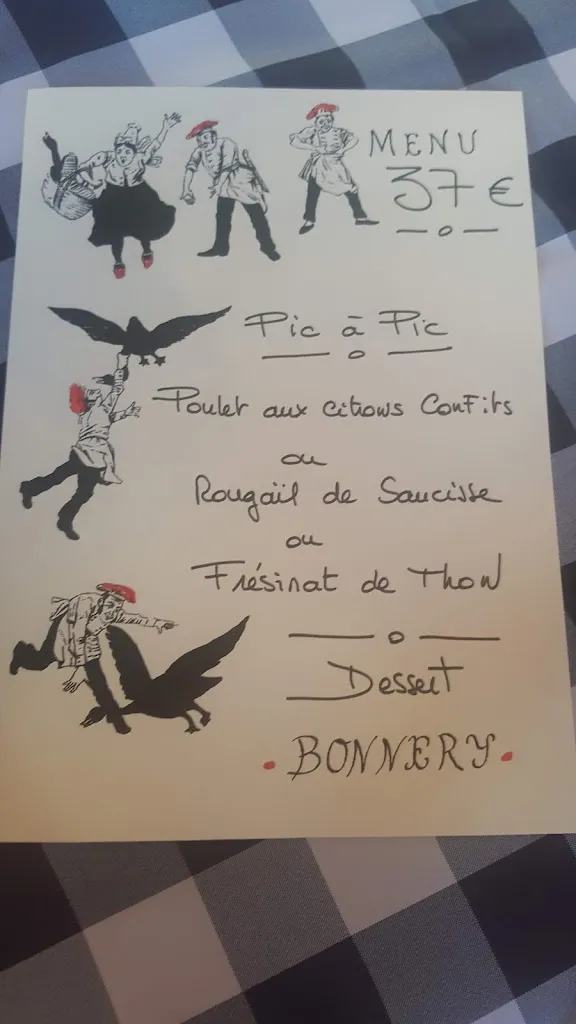 MENU
37 €
Pic à Pic
Poulet aux citrons Confits
ou
Rougaïl de Saucisse
ou
Frésinat de Thon
Dessert
BONNERY